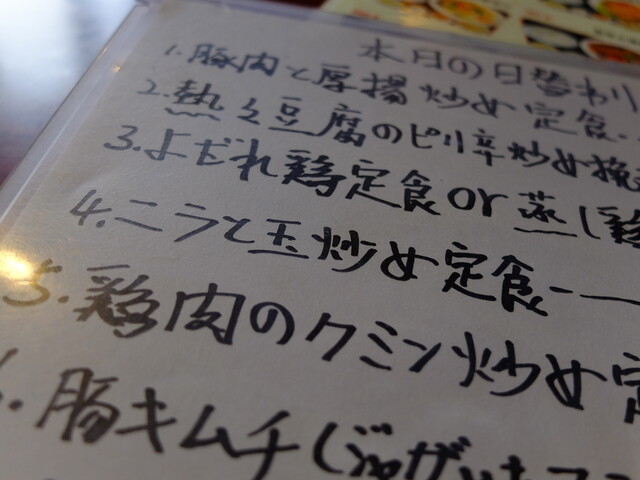 本日の日替わり
1. 豚肉と厚揚炒め定食
2. 熱々豆腐のピリ辛炒め
3. よだれ鶏定食or蒸し鶏
4. ニラと玉炒め定食
5. 鶏肉のクミン炒め定
6. 豚キムチ(